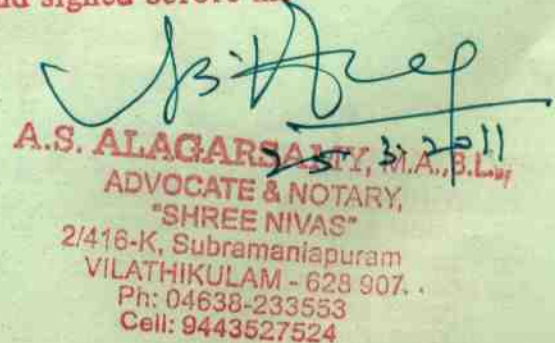 signed before
25 3. 2011
A.S. ALAGARSAMY, M.A., B.L.,
ADVOCATE & NOTARY,
"SHREE NIVAS"
2/416-K, Subramaniapuram
VILATHIKULAM - 628 907.
Ph: 04638-233553
Cell: 9443527524